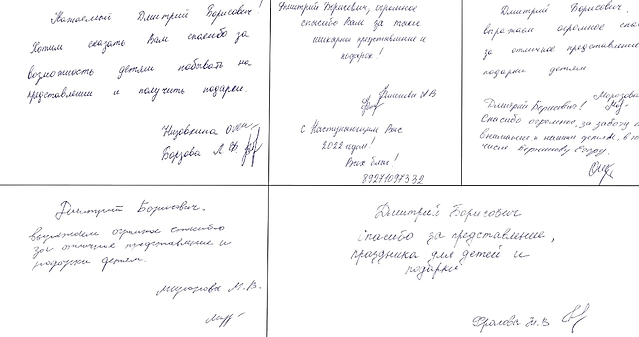 Уважаемый Дмитрий Борисович!
Хотим сказать Вам спасибо за
возможность детям побывать на
представлении и получить подарки.
Борзова Л
Дмитрий Борисович, огромное
спасибо Вам за такие
шикарные представление и
подарок!
С Наступающим Вас
2022 годом!
Всех благ!
89271097332
Дмитрий Борисович,
выражаем огромное
за отличное представление
подарки детям
Морозова
Дмитрий Борисович!
Спасибо огромное, за заботу
внимание к нашим детям, в
числе
Дмитрий Борисович.
выражаем огромное спасибо
за отличное представление и
подарки детям.
Морозова М.В.
Дмитрий Борисович
Спасибо за представление,
праздника для детей и
подарки
Фролова Н.В